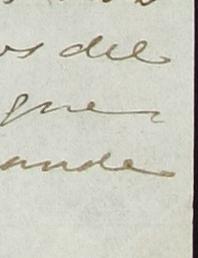 os del
que
ande